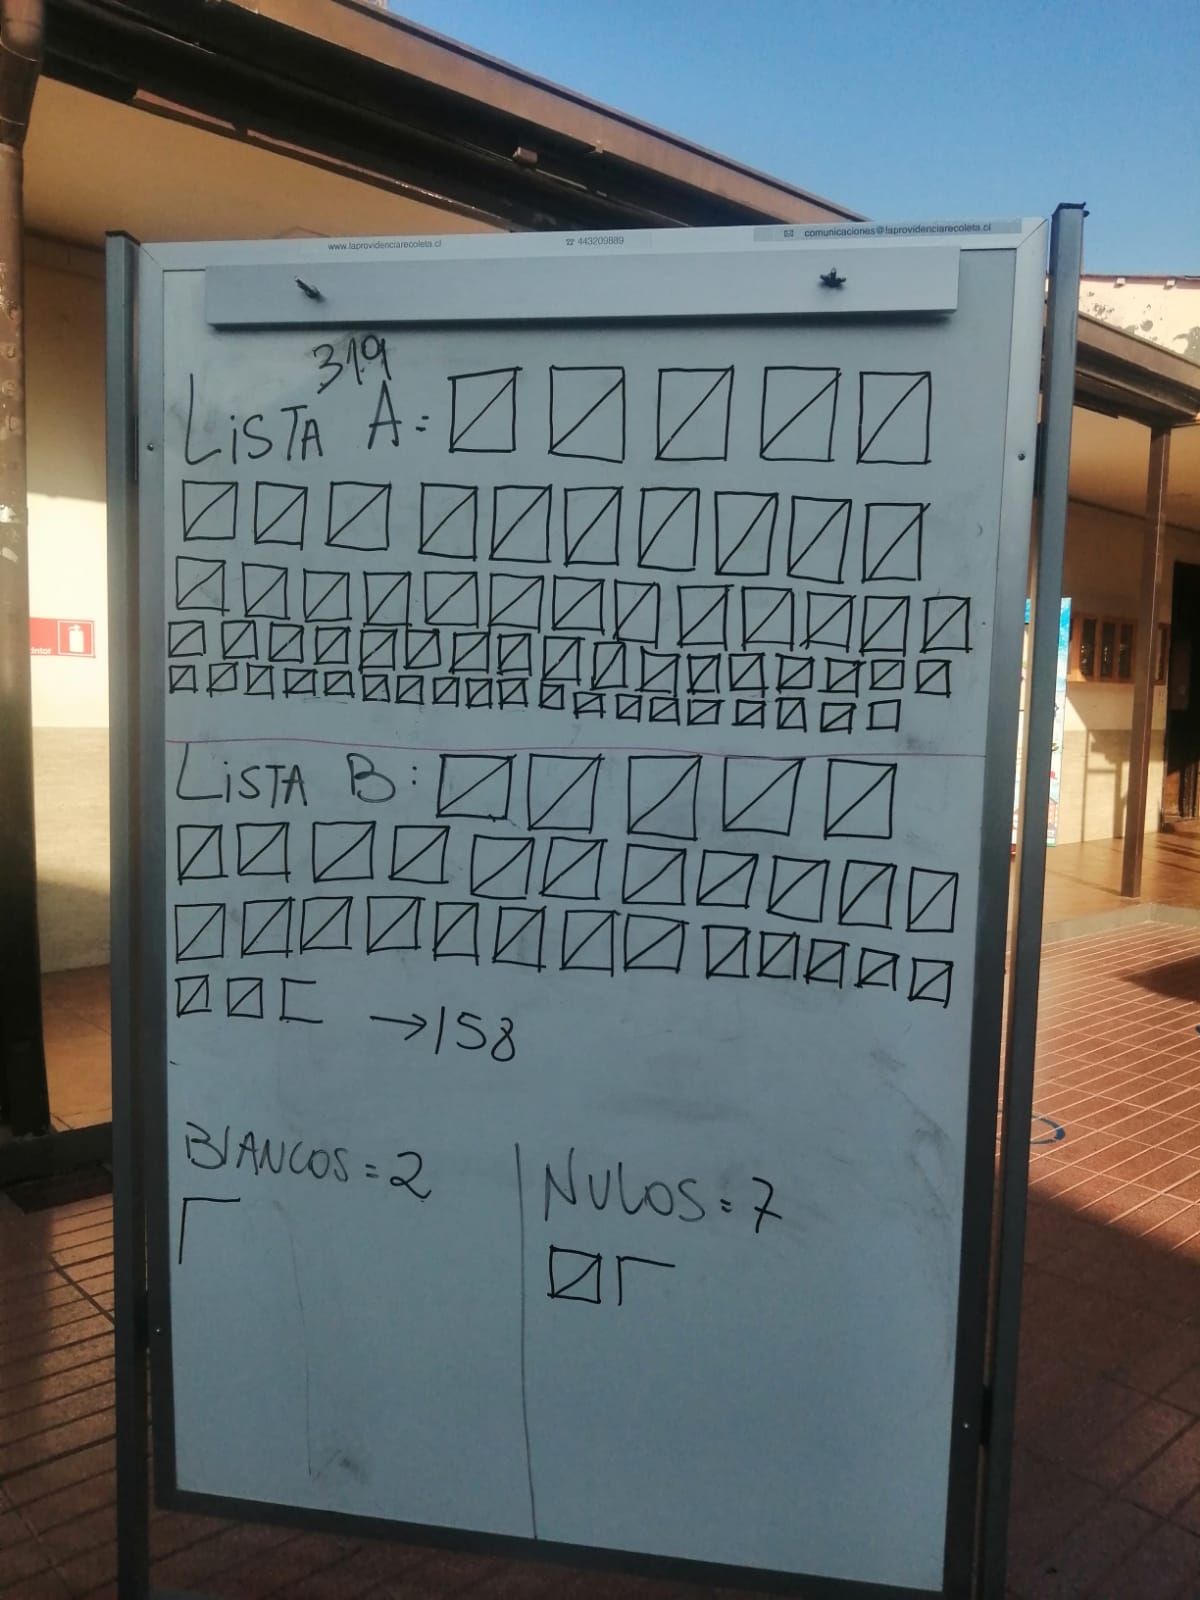 www.laprovidenciarecoleta.cl ☎ 443209889 ✉ comunicaciones@laprovidenciarecoleta.cl
319
LiSTA A:
LiSTA B:
→158
BlANCOS = 2
NULOS = 7
intor